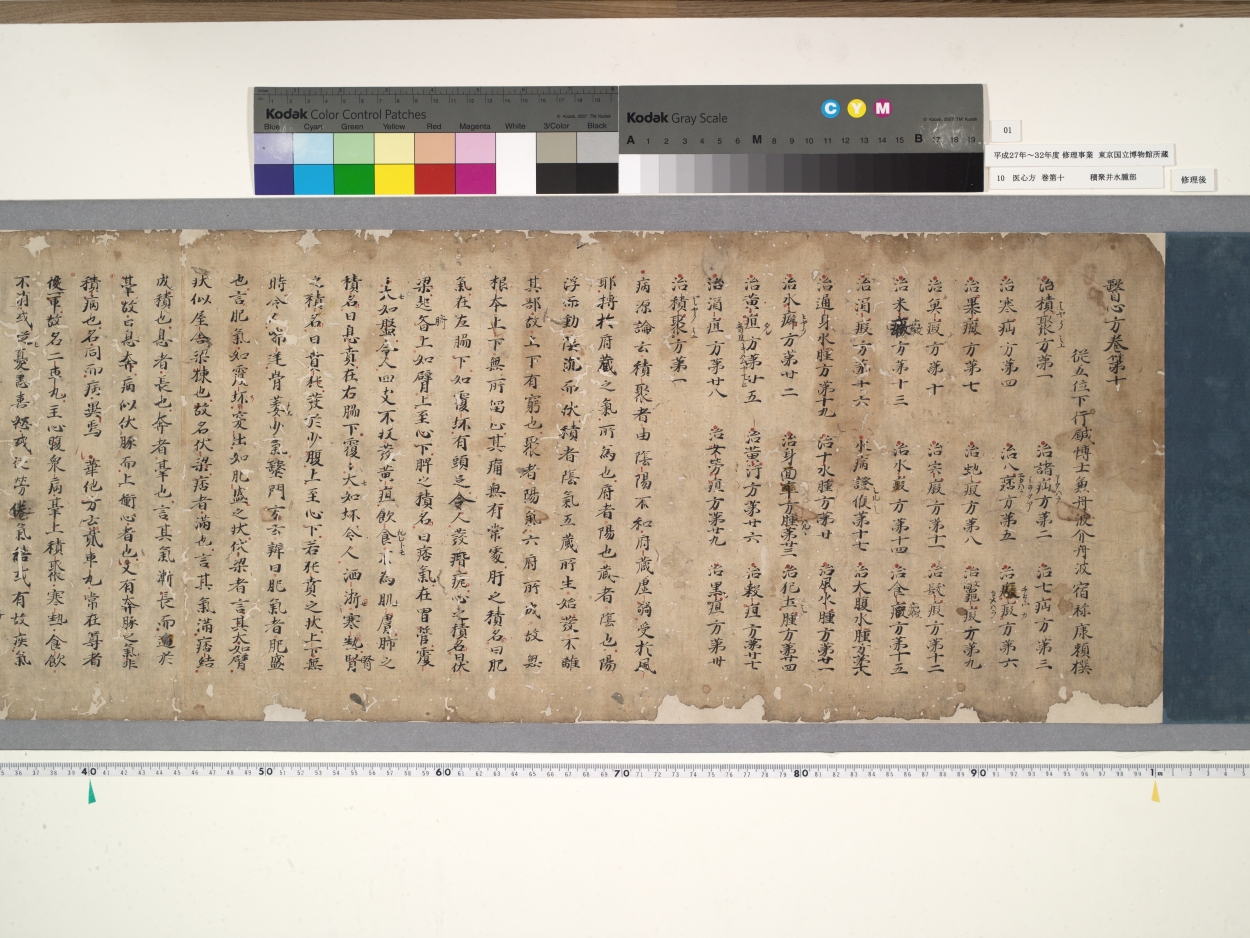 Kodak Color Control Patches
Blue Cyan Green Yellow Red Magenta White 3/Color Black
Kodak Gray Scale
C Y M
A 1 2 3 4 5 6 M 8 9 10 11 12 13 14 15 B 17 18 19
01
平成27年～32年度 修理事業 東京国立博物館所蔵
10 医心方 巻第十 積聚并水腫部
修理後
醫心方巻第十
從五位下行鍼博士兼丹波介丹波宿祢康頼撰
治積聚方第一 治諸疝方第二 治七疝方第三
治寒疝方第四 治八痞方第五 治癥瘕方第六
治暴癥方第七 治虵瘕方第八 治鼈瘕方第九
治魚瘕方第十 治完瘕方第十一 治髮瘕方第十二
治米癥方第十三 治水瘕方第十四 治食癥方第十五
治渇瘕方第十六 水病證候第十七 治大腹水腫方第十八
治通身水腫方第十九 治十水腫方第廿 治風水腫方第廿一
治水癖方第廿二 治身面卒方腫第廿三 治犯土腫方第廿四
治黄疸方第廿五 治黄汗方第廿六 治穀疸方第廿七
治酒疸方第廿八 治女勞疸方第廿九 治黒疸方第卅
治積聚方第一
病源論云積聚者由陰陽不和府藏虚弱受於風
耶搏於府藏之氣所為也府者陽也藏者陰也陽
浮而動陰沉而伏積者陰氣五藏所生始發不離
其部故上下有窮也聚者陽氣六府所成故無
根本上下無所留止其痛無有常處肝之積名曰肥
氣在左脇下如覆坏有頭足令人發瘠瘧心之積名曰伏
梁起齊上如臂上至心下脾之積名曰痞氣在胃管覆
大如盤令人四支不收發黄疸飲食不為肌膚肺之
積名曰息賁在右脇下覆大如坏令人洒淅寒熱腎
之積名曰賁㹠發於少腹上至心下若㹠賁之状上下無
時令人喘逆骨萎少氣醫門方云辨曰肥氣者肥盛
也言肥氣如覆坏突出如肥盛之状伏梁者言其大如臂
状似屋舍梁棟也故名伏梁痞者滿也言其氣滿痞結
成積也息者長也奔者其也言其氣漸長而逼於
其故曰息奔病似伏豚而上衝心者也又有奔豚之氣非
積病也名同而病異焉 華他方云貳車丸常在尊者
後軍故名二車丸主心腹衆病其上積聚寒熱食飲
不消或従憂恚喜怒或従勞倦氣結或有故疾氣
40 50 60 70 80 90 1m